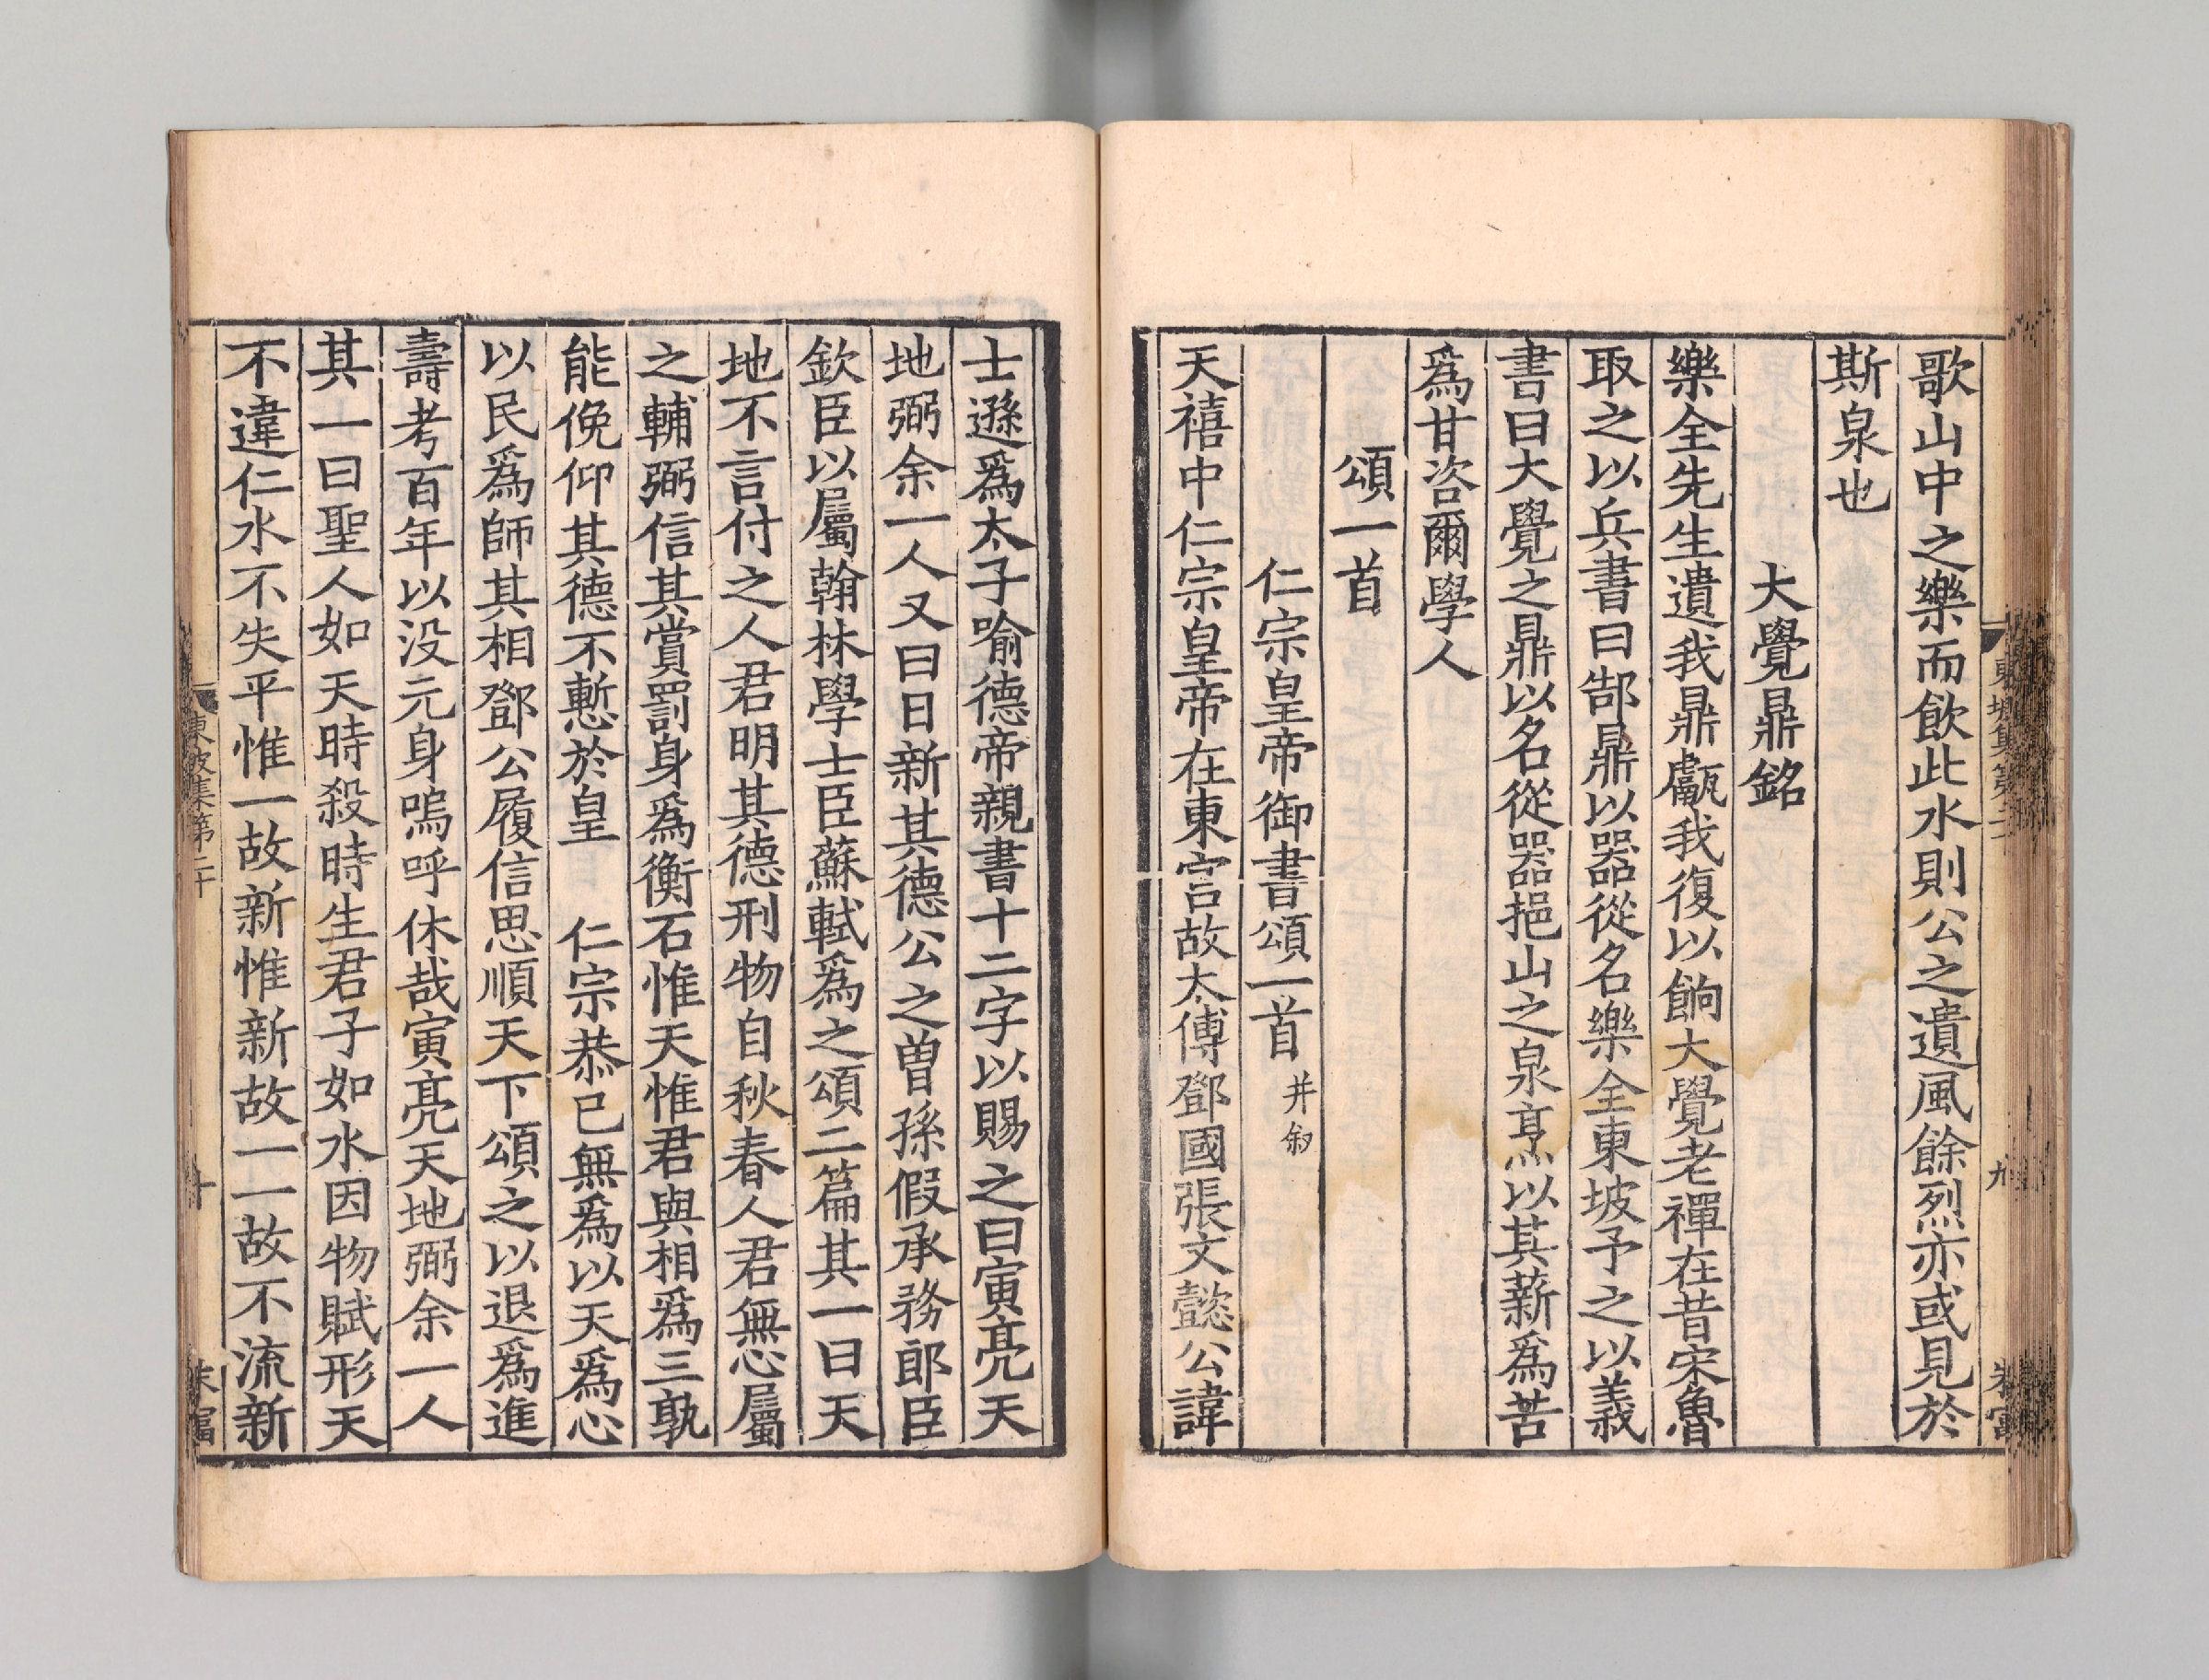 歌山中之樂而飲此水則公之遺風餘烈亦或見於
斯泉也
大覺鼎銘
樂全先生遺我鼎甗我復以餉大覺老禪在昔宋魯
取之以兵書曰郜鼎以器從名樂全東坡予之以義
書曰大覺之鼎以名從器挹山之泉烹以其薪爲苦
爲甘咨爾學人
頌一首
仁宗皇帝御書頌一首并叙
天禧中仁宗皇帝在東宫故太傅鄧國張文懿公諱
士遜爲太子喻德帝親書十二字以賜之曰寅亮天
地弼余一人又曰日新其德公之曾孫假承務郎臣
欽臣以屬翰林學士臣蘇軾爲之頌二篇其一曰天
地不言付之人君明其德刑物自秋春人君無心屬
之輔弼信其賞罰身爲衡石惟天惟君與相爲三孰
能俛仰其德不慙於皇 仁宗恭已無爲以天爲心
以民爲師其相鄧公履信思順天下頌之以退爲進
壽考百年以没元身嗚呼休哉寅亮天地弼余一人
其一曰聖人如天時殺時生君子如水因物賦形天
不違仁水不失平惟一故新惟新故一一故不流新
東坡集第二十
十